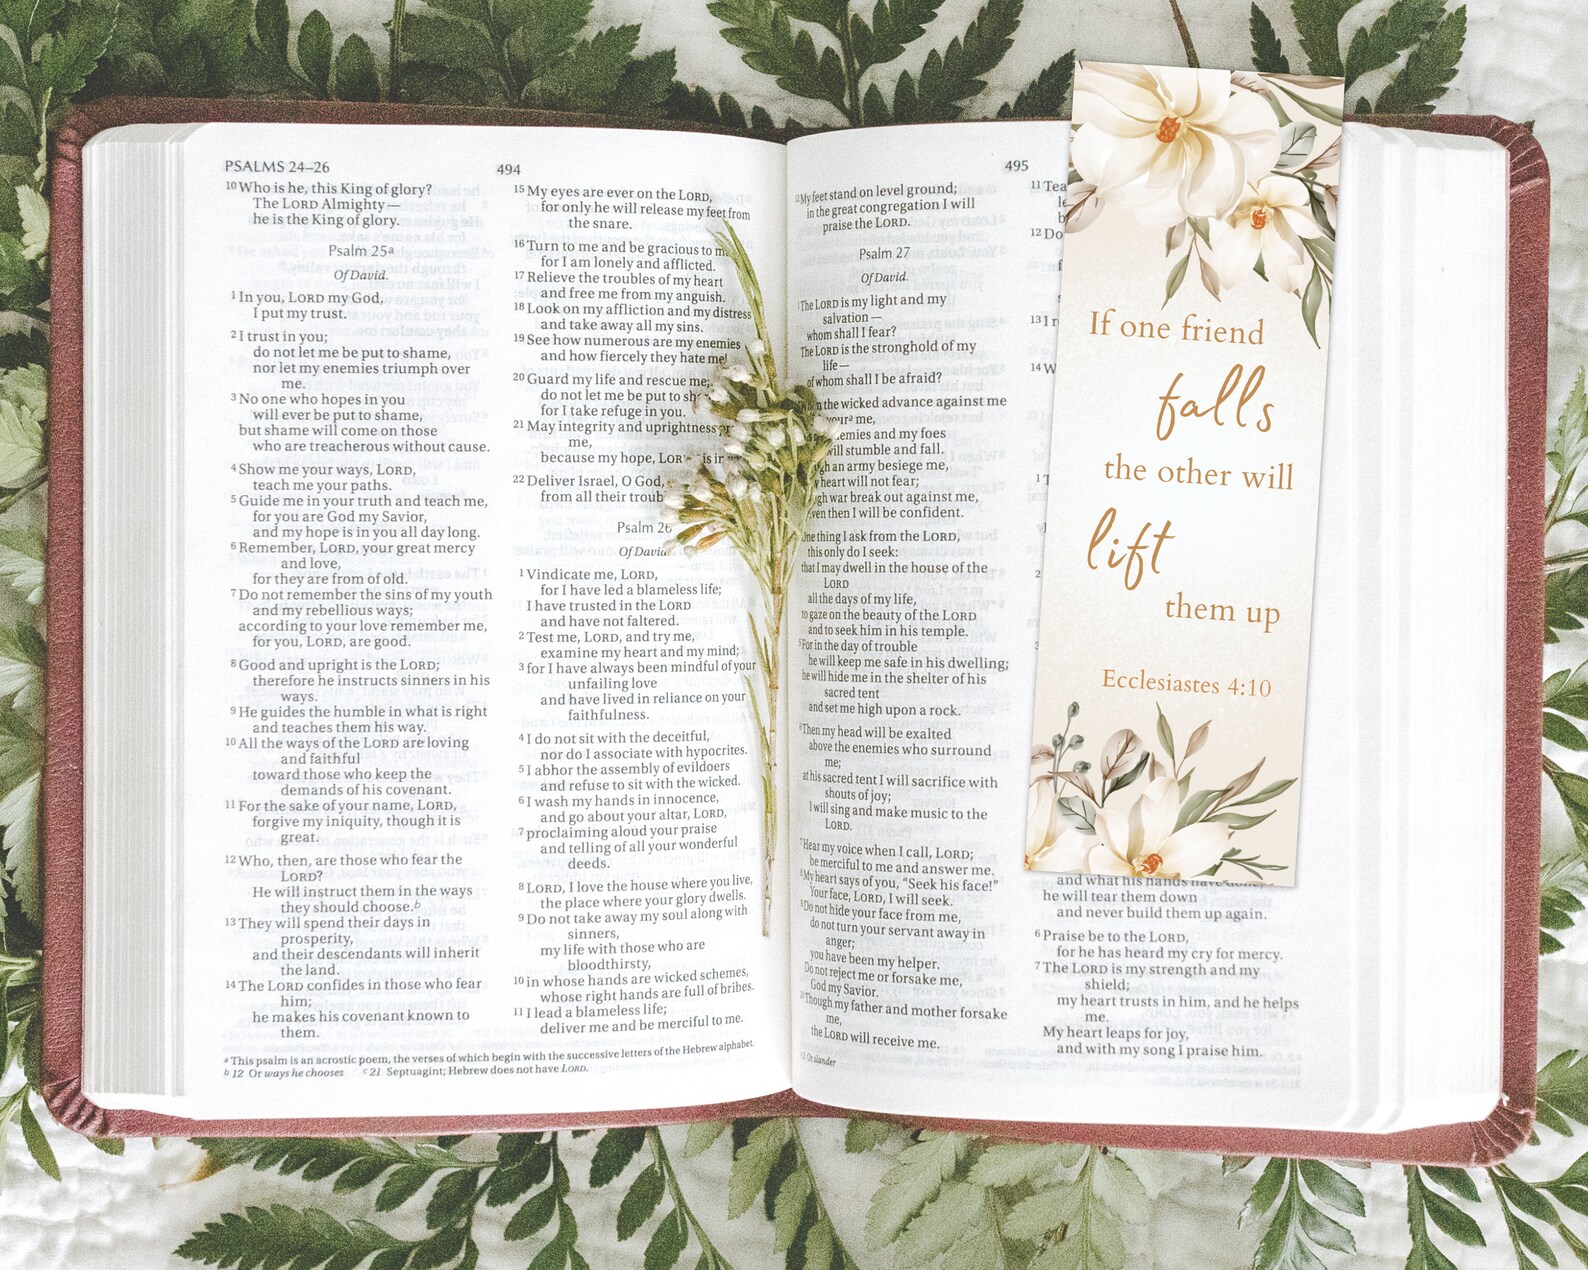 PSALMS 24–26
494
10 Who is he, this King of glory?
The LORD Almighty—
he is the King of glory.
Psalm 25a
Of David.
1 In you, LORD my God,
I put my trust.
2 I trust in you;
do not let me be put to shame,
nor let my enemies triumph over
me.
3 No one who hopes in you
will ever be put to shame,
but shame will come on those
who are treacherous without cause.
4 Show me your ways, LORD,
teach me your paths.
5 Guide me in your truth and teach me,
for you are God my Savior,
and my hope is in you all day long.
6 Remember, LORD, your great mercy
and love,
for they are from of old.
7 Do not remember the sins of my youth
and my rebellious ways;
according to your love remember me,
for you, LORD, are good.
8 Good and upright is the LORD;
therefore he instructs sinners in his
ways.
9 He guides the humble in what is right
and teaches them his way.
10 All the ways of the LORD are loving
and faithful
toward those who keep the
demands of his covenant.
11 For the sake of your name, LORD,
forgive my iniquity, though it is
great.
12 Who, then, are those who fear the
LORD?
He will instruct them in the ways
they should choose.b
13 They will spend their days in
prosperity,
and their descendants will inherit
the land.
14 The LORD confides in those who fear
him;
he makes his covenant known to
them.
15 My eyes are ever on the LORD,
for only he will release my feet from
the snare.
16 Turn to me and be gracious to
for I am lonely and afflicted.
17 Relieve the troubles of my heart
and free me from my anguish.
18 Look on my affliction and my distress
and take away all my sins.
19 See how numerous are my enemies
and how fiercely they hate me!
20 Guard my life and rescue me;
do not let me be put to
for I take refuge in you.
21 May integrity and uprightness
me,
because my hope, is
22 Deliver Israel, O God,
from all their
Psalm 26
Of David.
1 Vindicate me, LORD,
for I have led a blameless life;
I have trusted in the LORD
and have not faltered.
2 Test me, LORD, and try me,
examine my heart and my mind;
3 for I have always been mindful of your
unfailing love
and have lived in reliance on your
faithfulness.
4 I do not sit with the deceitful,
nor do I associate with hypocrites.
5 I abhor the assembly of evildoers
and refuse to sit with the wicked.
6 I wash my hands in innocence,
and go about your altar, LORD,
7 proclaiming aloud your praise
and telling of all your wonderful
deeds.
8 LORD, I love the house where you live,
the place where your glory dwells.
9 Do not take away my soul along with
sinners,
my life with those who are
bloodthirsty,
10 in whose hands are wicked schemes,
whose right hands are full of bribes.
11 I lead a blameless life;
deliver me and be merciful to me.
a This psalm is an acrostic poem, the verses of which begin with the successive letters of the Hebrew alphabet.
b 12 Or ways he chooses c 21 Septuagint; Hebrew does not have LORD.
495
12 My feet stand on level ground;
in the great congregation I will
praise the LORD.
Psalm 27
Of David.
1 The LORD is my light and my
salvation—
whom shall I fear?
The LORD is the stronghold of my
life—
of whom shall I be afraid?
the wicked advance against me
me,
and my foes
will stumble and fall.
an army besiege me,
heart will not fear;
war break out against me,
then I will be confident.
One thing I ask from the LORD,
this only do I seek:
that I may dwell in the house of the
LORD
all the days of my life,
to gaze on the beauty of the LORD
and to seek him in his temple.
5 For in the day of trouble
he will keep me safe in his dwelling;
he will hide me in the shelter of his
sacred tent
and set me high upon a rock.
6 Then my head will be exalted
above the enemies who surround
me;
at his sacred tent I will sacrifice with
shouts of joy;
I will sing and make music to the
LORD.
7 Hear my voice when I call, LORD;
be merciful to me and answer me.
8 My heart says of you, “Seek his face!”
Your face, LORD, I will seek.
9 Do not hide your face from me,
do not turn your servant away in
anger;
you have been my helper.
Do not reject me or forsake me,
God my Savior.
10 Though my father and mother forsake
me,
the LORD will receive me.
a 2 Or slander
11
12 Do
13 I
14
If one friend
falls
the other will
lift
them up
Ecclesiastes 4:10
and what his hands have done,
he will tear them down
and never build them up again.
6 Praise be to the LORD,
for he has heard my cry for mercy.
7 The LORD is my strength and my
shield;
my heart trusts in him, and he helps
me.
My heart leaps for joy,
and with my song I praise him.